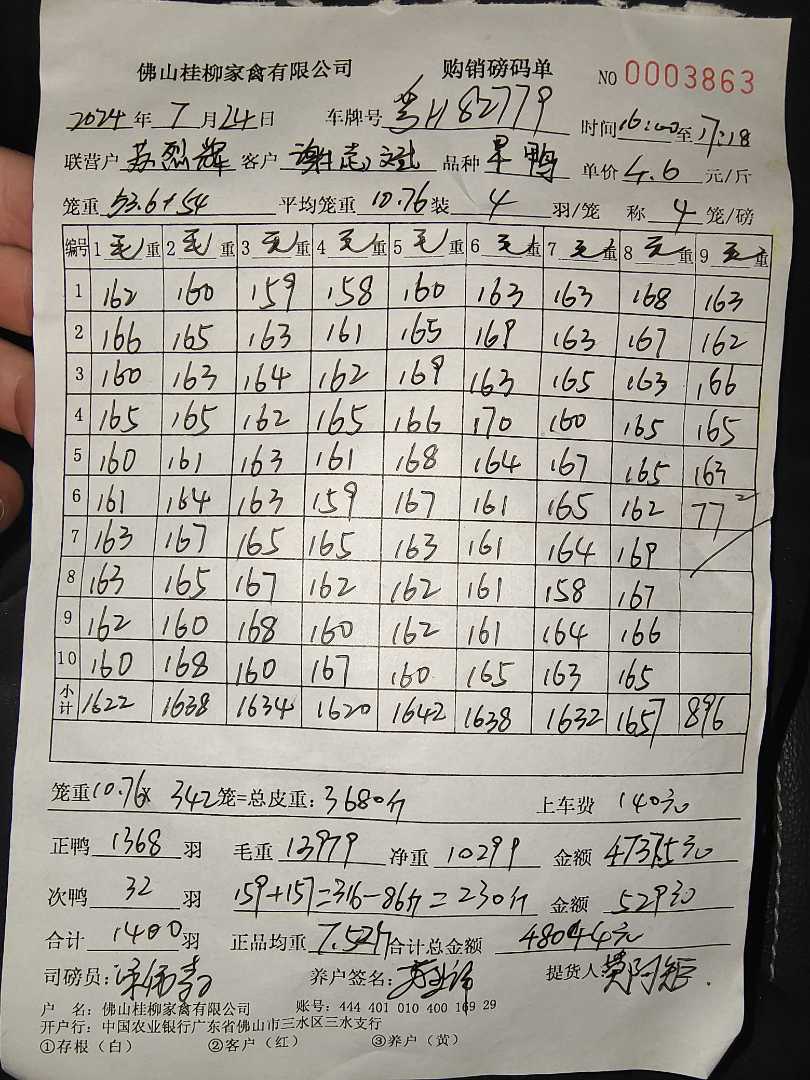 佛山桂柳家禽有限公司 购销磅码单 NO 0003863
2024年 7月24日 车牌号 粤H82779 时间16:00至17:18
联营户 苏烈辉 客户 谢志斌 品种 旱鸭 单价 4.6 元/斤
笼重 53.6+54 平均笼重 10.76 装 4 羽/笼 称 4 笼/磅
编号 1毛重 2毛重 3毛重 4毛重 5毛重 6毛重 7毛重 8毛重 9毛重
1 162 160 159 158 160 163 163 168 163
2 166 165 163 161 165 169 163 167 162
3 160 163 164 162 169 163 165 163 166
4 165 165 162 165 166 170 160 165 165
5 160 161 163 161 168 164 167 165 163
6 161 164 163 159 167 161 165 162 77²
7 163 167 165 165 163 161 164 169
8 163 165 167 162 162 161 158 167
9 162 160 168 160 162 161 164 166
10 160 168 160 167 160 165 163 165
小计 1622 1638 1634 1620 1642 1638 1632 1657 896
笼重10.76× 342笼=总皮重:3680斤 上车费 140元
正鸭 1368 羽 毛重 13979 净重 10299 金额 47375元
次鸭 32 羽 159+157=316-86斤=230斤 金额 529元
合计 1400羽 正品均重 7.52斤 合计总金额 48044元
司磅员: 养户签名: 提货人:
户 名: 佛山桂柳家禽有限公司 账号: 444 401 010 400 169 29
开户行: 中国农业银行广东省佛山市三水区三水支行
①存根(白) ②客户(红) ③养户(黄)